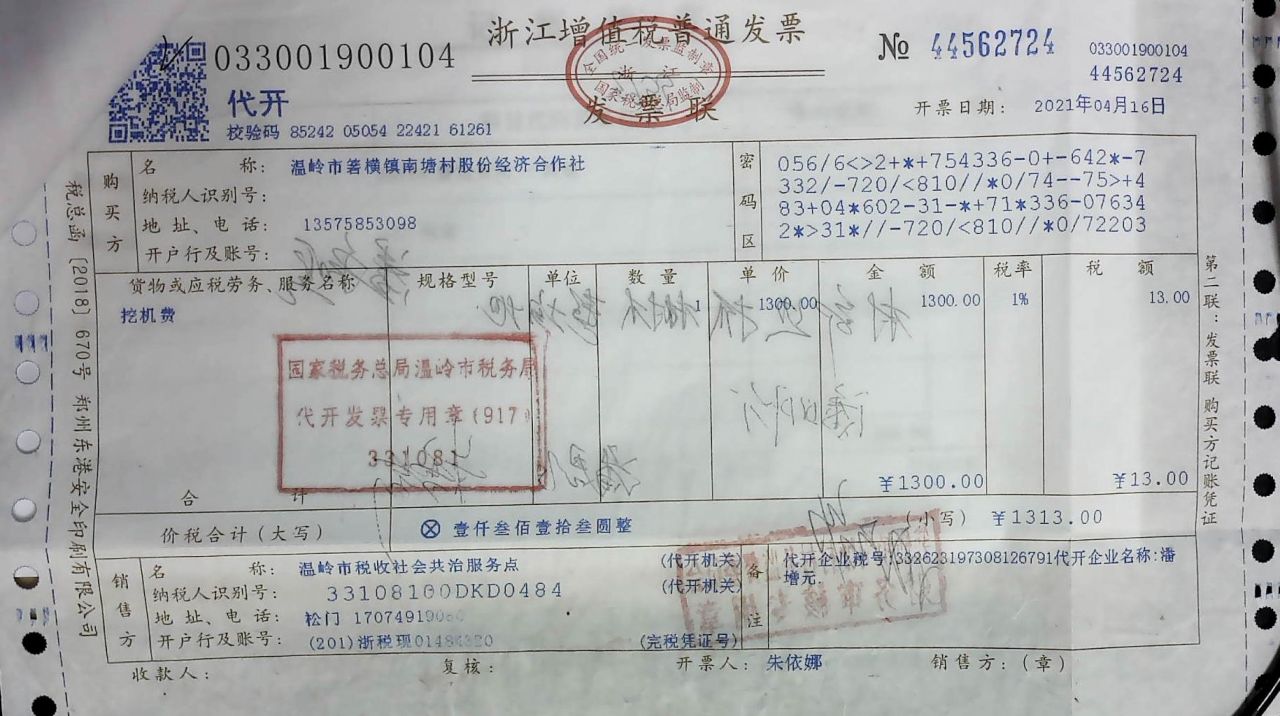 浙江增值税普通发票
033001900104
№ 44562724
033001900104
44562724
代开
发票联
全国统一发票监制章
浙江
国家税务总局监制
开票日期: 2021年04月16日
校验码 85242 05054 22421 61261
税总函〔2018〕670号 郑州东港安全印刷有限公司
购买方
名 称: 温岭市箬横镇南塘村股份经济合作社
纳税人识别号:
地址、电话: 13575853098
开户行及账号:
密码区
056/6<>2+*+754336-0+-642*-7
332/-720/<810//*0/74--75>+4
83+04*602-31-*+71*336-07634
2*>31*//-720/<810//*0/72203
货物或应税劳务、服务名称 规格型号 单位 数量 单价 金额 税率 税额
挖机费 1 1300.00 1300.00 1% 13.00
国家税务总局温岭市税务局
代开发票专用章(917)
331081
合计 ¥1300.00 ¥13.00
价税合计(大写) ⊗ 壹仟叁佰壹拾叁圆整 (小写) ¥1313.00
销售方
名 称: 温岭市税收社会共治服务点 (代开机关)
纳税人识别号: 33108100DKD0484 (代开机关)
地址、电话: 松门
开户行及账号: (201)浙税现 (完税凭证号)
备注
代开企业税号:332623197308126791代开企业名称:潘
增元.
收款人: 复核: 开票人: 朱依娜 销售方:(章)
第二联:发票联 购买方记账凭证